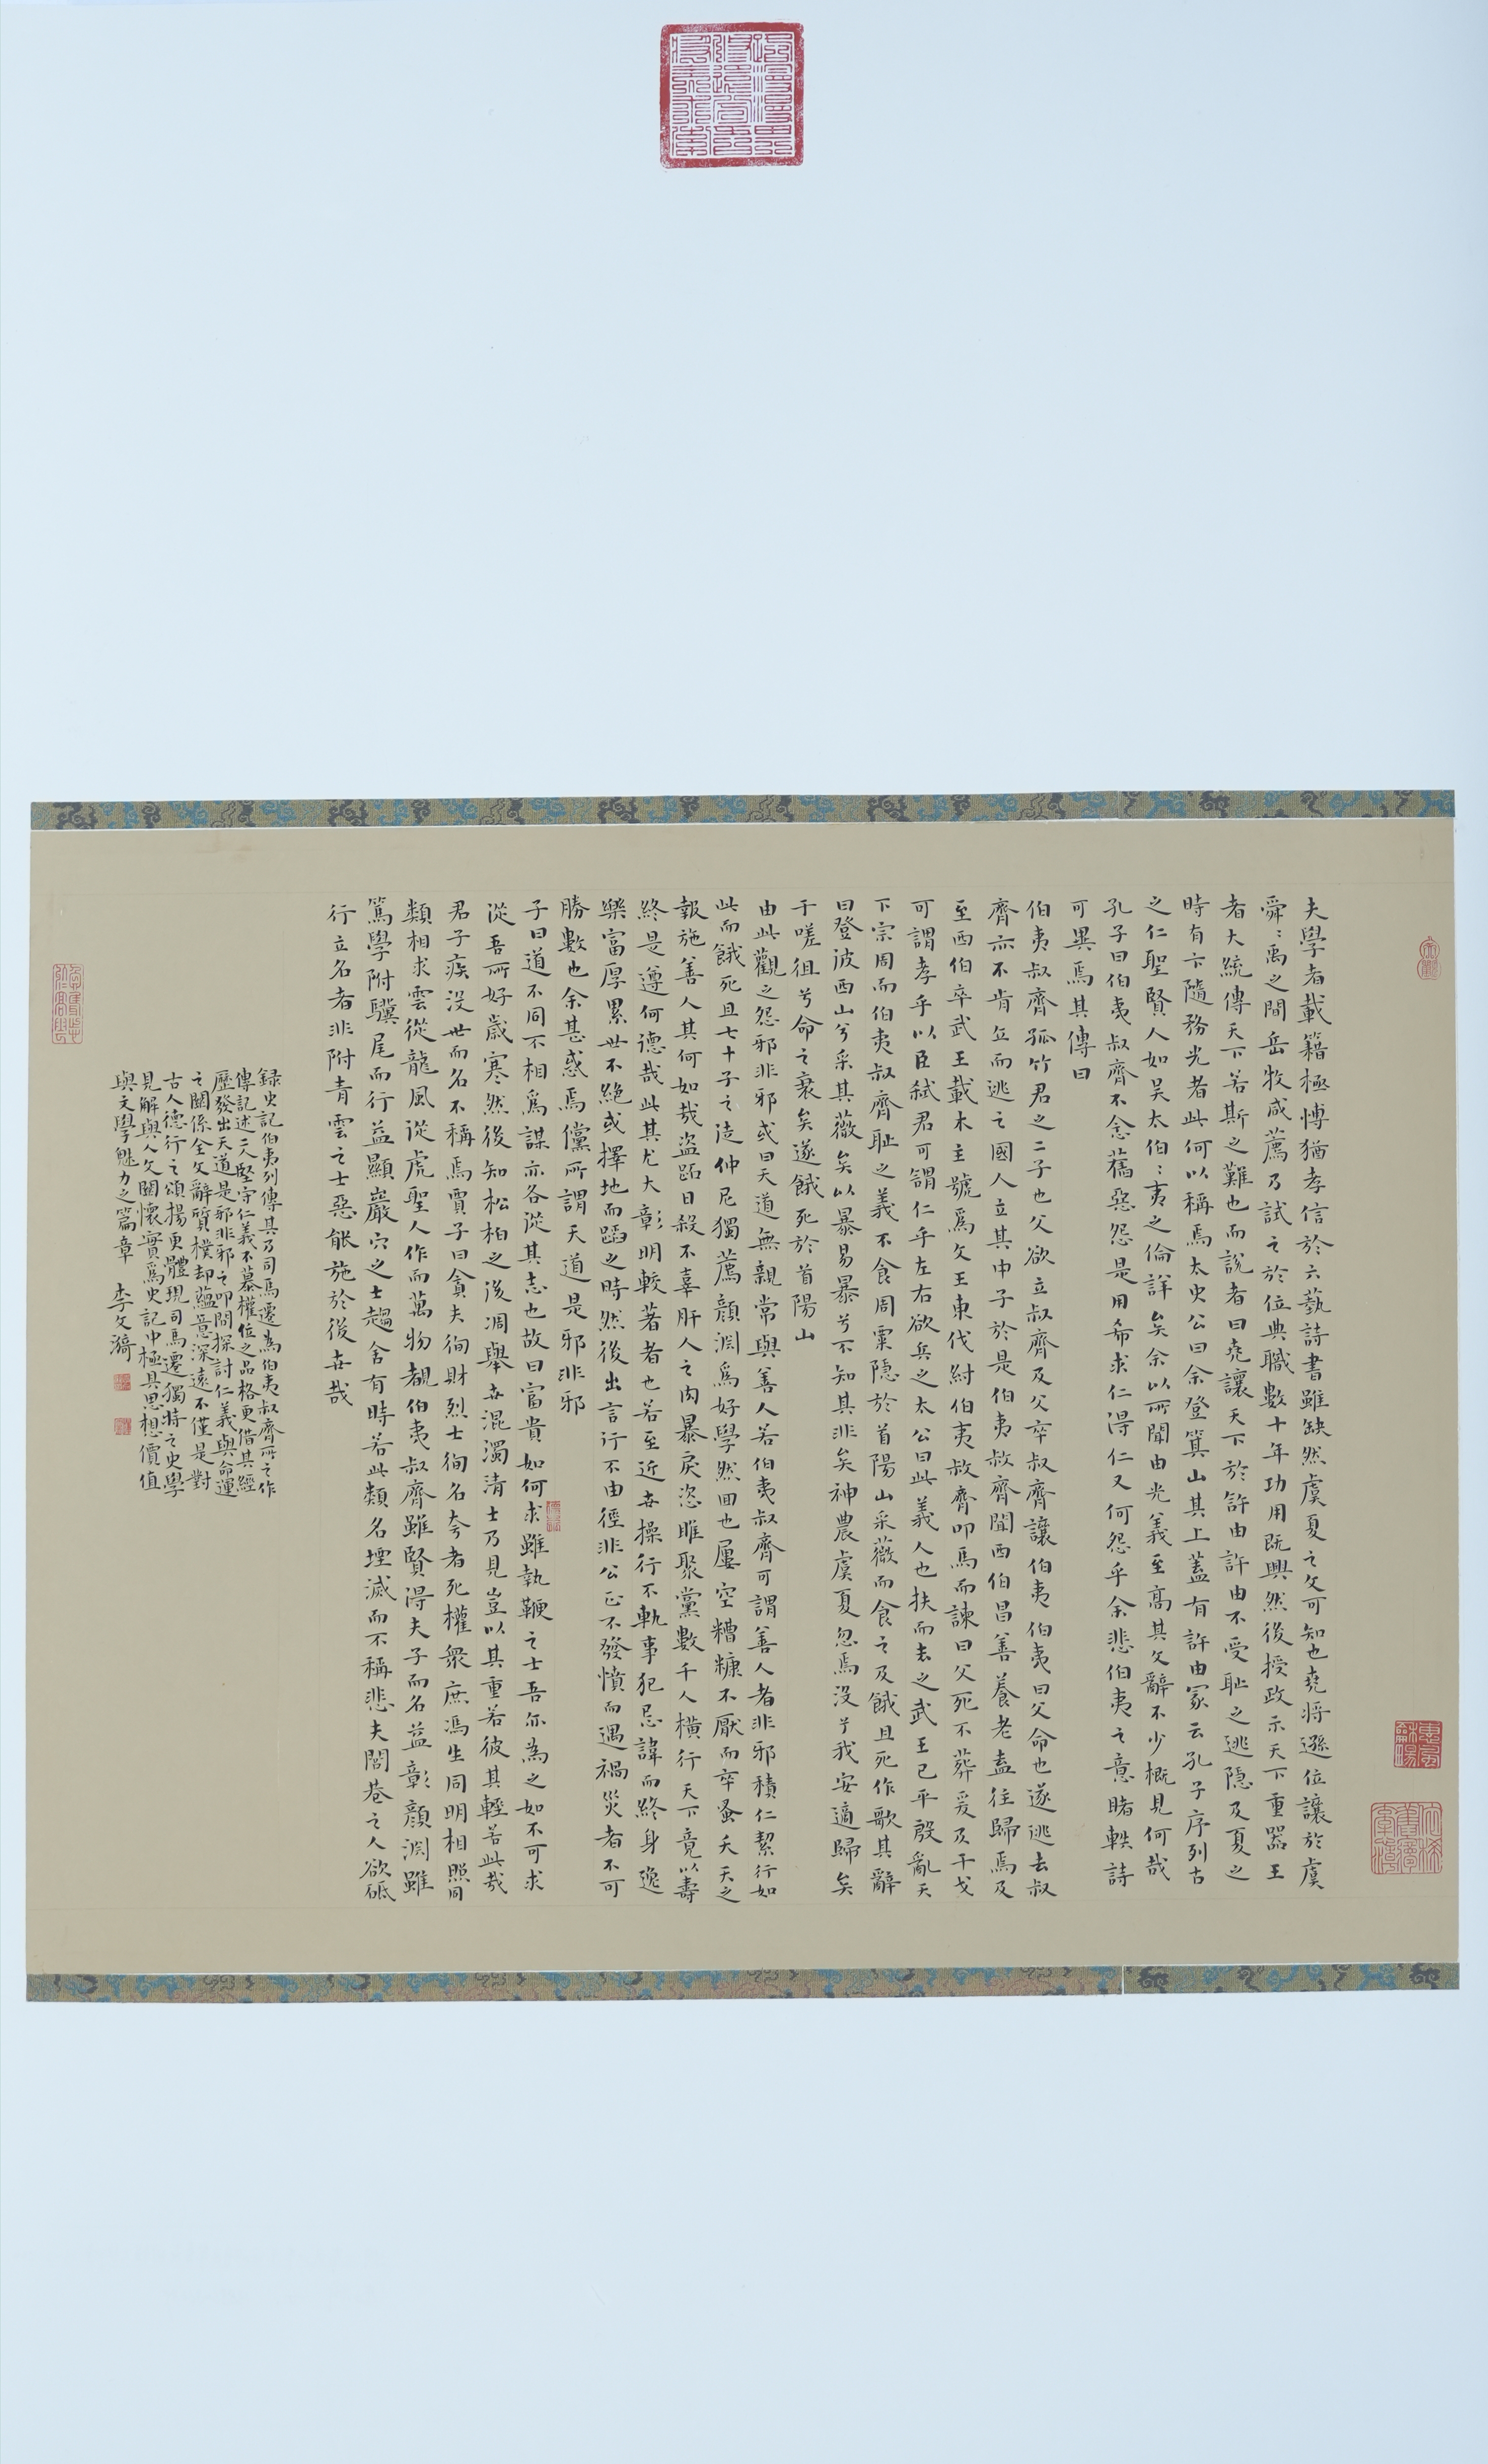 夫學者載籍極博猶孝信於六藝詩書雖缺然虞夏之文可知也堯將遜位讓於虞
舜舜禹之間岳牧咸薦乃試之於位典職數十年功用既興然後授政示天下重器王
者大統傳天下若斯之難也而說者曰堯讓天下於許由許由不受耻之逃隱及夏之
時有卞隨務光者此何以稱焉太史公曰余登箕山其上蓋有許由冢云孔子序列古
之仁聖賢人如吴太伯伯夷之倫詳矣余以所聞由光義至高其文辭不少概見何哉
孔子曰伯夷叔齊不念舊惡怨是用希求仁得仁又何怨乎余悲伯夷之意睹軼詩
可異焉其傳曰
伯夷叔齊孤竹君之二子也父欲立叔齊及父卒叔齊讓伯夷伯夷曰父命也遂逃去叔
齊亦不肯立而逃之國人立其中子於是伯夷叔齊聞西伯昌善養老盍往歸焉及
至西伯卒武王載木主號爲文王東伐紂伯夷叔齊叩馬而諫曰父死不葬爰及干戈
可謂孝乎以臣弑君可謂仁乎左右欲兵之太公曰此義人也扶而去之武王已平殷亂天
下宗周而伯夷叔齊耻之義不食周粟隱於首陽山采薇而食之及餓且死作歌其辭
曰登彼西山兮采其薇矣以暴易暴兮不知其非矣神農虞夏忽焉没兮我安適歸矣
于嗟徂兮命之衰矣遂餓死於首陽山
由此觀之怨邪非邪或曰天道無親常與善人若伯夷叔齊可謂善人者非邪積仁絜行如
此而餓死且七十子之徒仲尼獨薦顔淵爲好學然回也屢空糟糠不厭而卒蚤夭天之
報施善人其何如哉盗蹈日殺不辜肝人之肉暴戾恣睢聚黨數千人横行天下竟以壽
終是遵何德哉此其尤大彰明較著者也若至近世操行不軌事犯忌諱而終身逸
樂富厚累世不絶或擇地而蹈之時然後出言行不由徑非公正不發憤而遇禍災者不可
勝數也余甚惑焉儻所謂天道是邪非邪
子曰道不同不相爲謀亦各從其志也故曰富貴如何求雖執鞭之士吾亦為之如不可求
從吾所好歲寒然後知松柏之後凋舉世混濁清士乃見豈以其重若彼其輕若此哉
君子疾没世而名不稱焉賈子曰貪夫徇財烈士徇名夸者死權衆庶馮生同明相照同
類相求雲從龍風從虎聖人作而萬物覩伯夷叔齊雖賢得夫子而名益彰顔淵雖
篤學附驥尾而行益顯巖穴之士趨舍有時若此類名堙滅而不稱悲夫閭巷之人欲砥
行立名者非附青雲之士惡能施於後世哉
録史記伯夷列傳其乃司馬遷為伯夷叔齊所之作
傳記述二人堅守仁義不慕權位之品格更借其經
歷發出天道是邪非邪之叩問探討仁義與命運
之關係全文辭質樸却藴意深遠不僅是對
古人德行之頌揚更體現司馬遷獨特之史學
見解與人文關懷實爲史記中極具思想價值
與文學魅力之篇章 李文漪